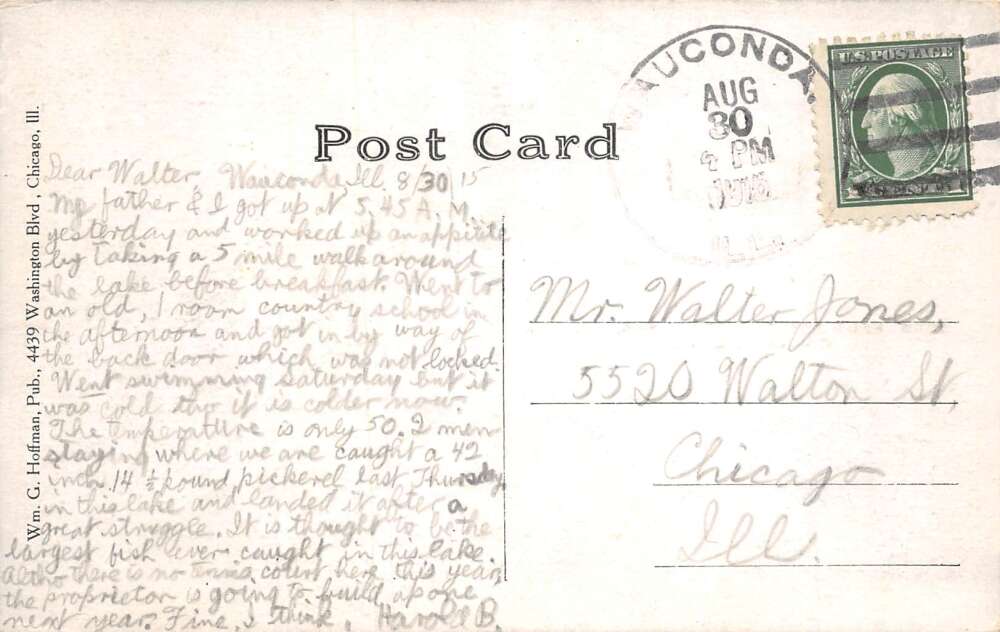 Wm. G. Hoffman, Pub., 4439 Washington Blvd., Chicago, Ill.
Post Card
WAUCONDA,
AUG
30
4 PM
ILL.
U.S. POSTAGE
Dear Walter, Wauconda, Ill. 8/30/15
My father & I got up at 5.45 A.M.
yesterday and worked up an appitite
by taking a 5 mile walk around
the lake before breakfast. Went to
an old, 1 room country school in
the afternoon and got in by way of
the back door which was not locked.
Went swimming Saturday but it
was cold tho it is colder now.
The temperature is only 50. 2 men
staying where we are caught a 42
inch 14 ½ pound pickerel last Thursday
in this lake and landed it after a
great struggle. It is thought to be the
largest fish ever caught in this lake.
Altho there is no tennis court here this year,
the proprietor is going to build up one
next year. Fine, I think. Harold B.
Mr. Walter Jones,
5520 Walton St,
Chicago
Ill.